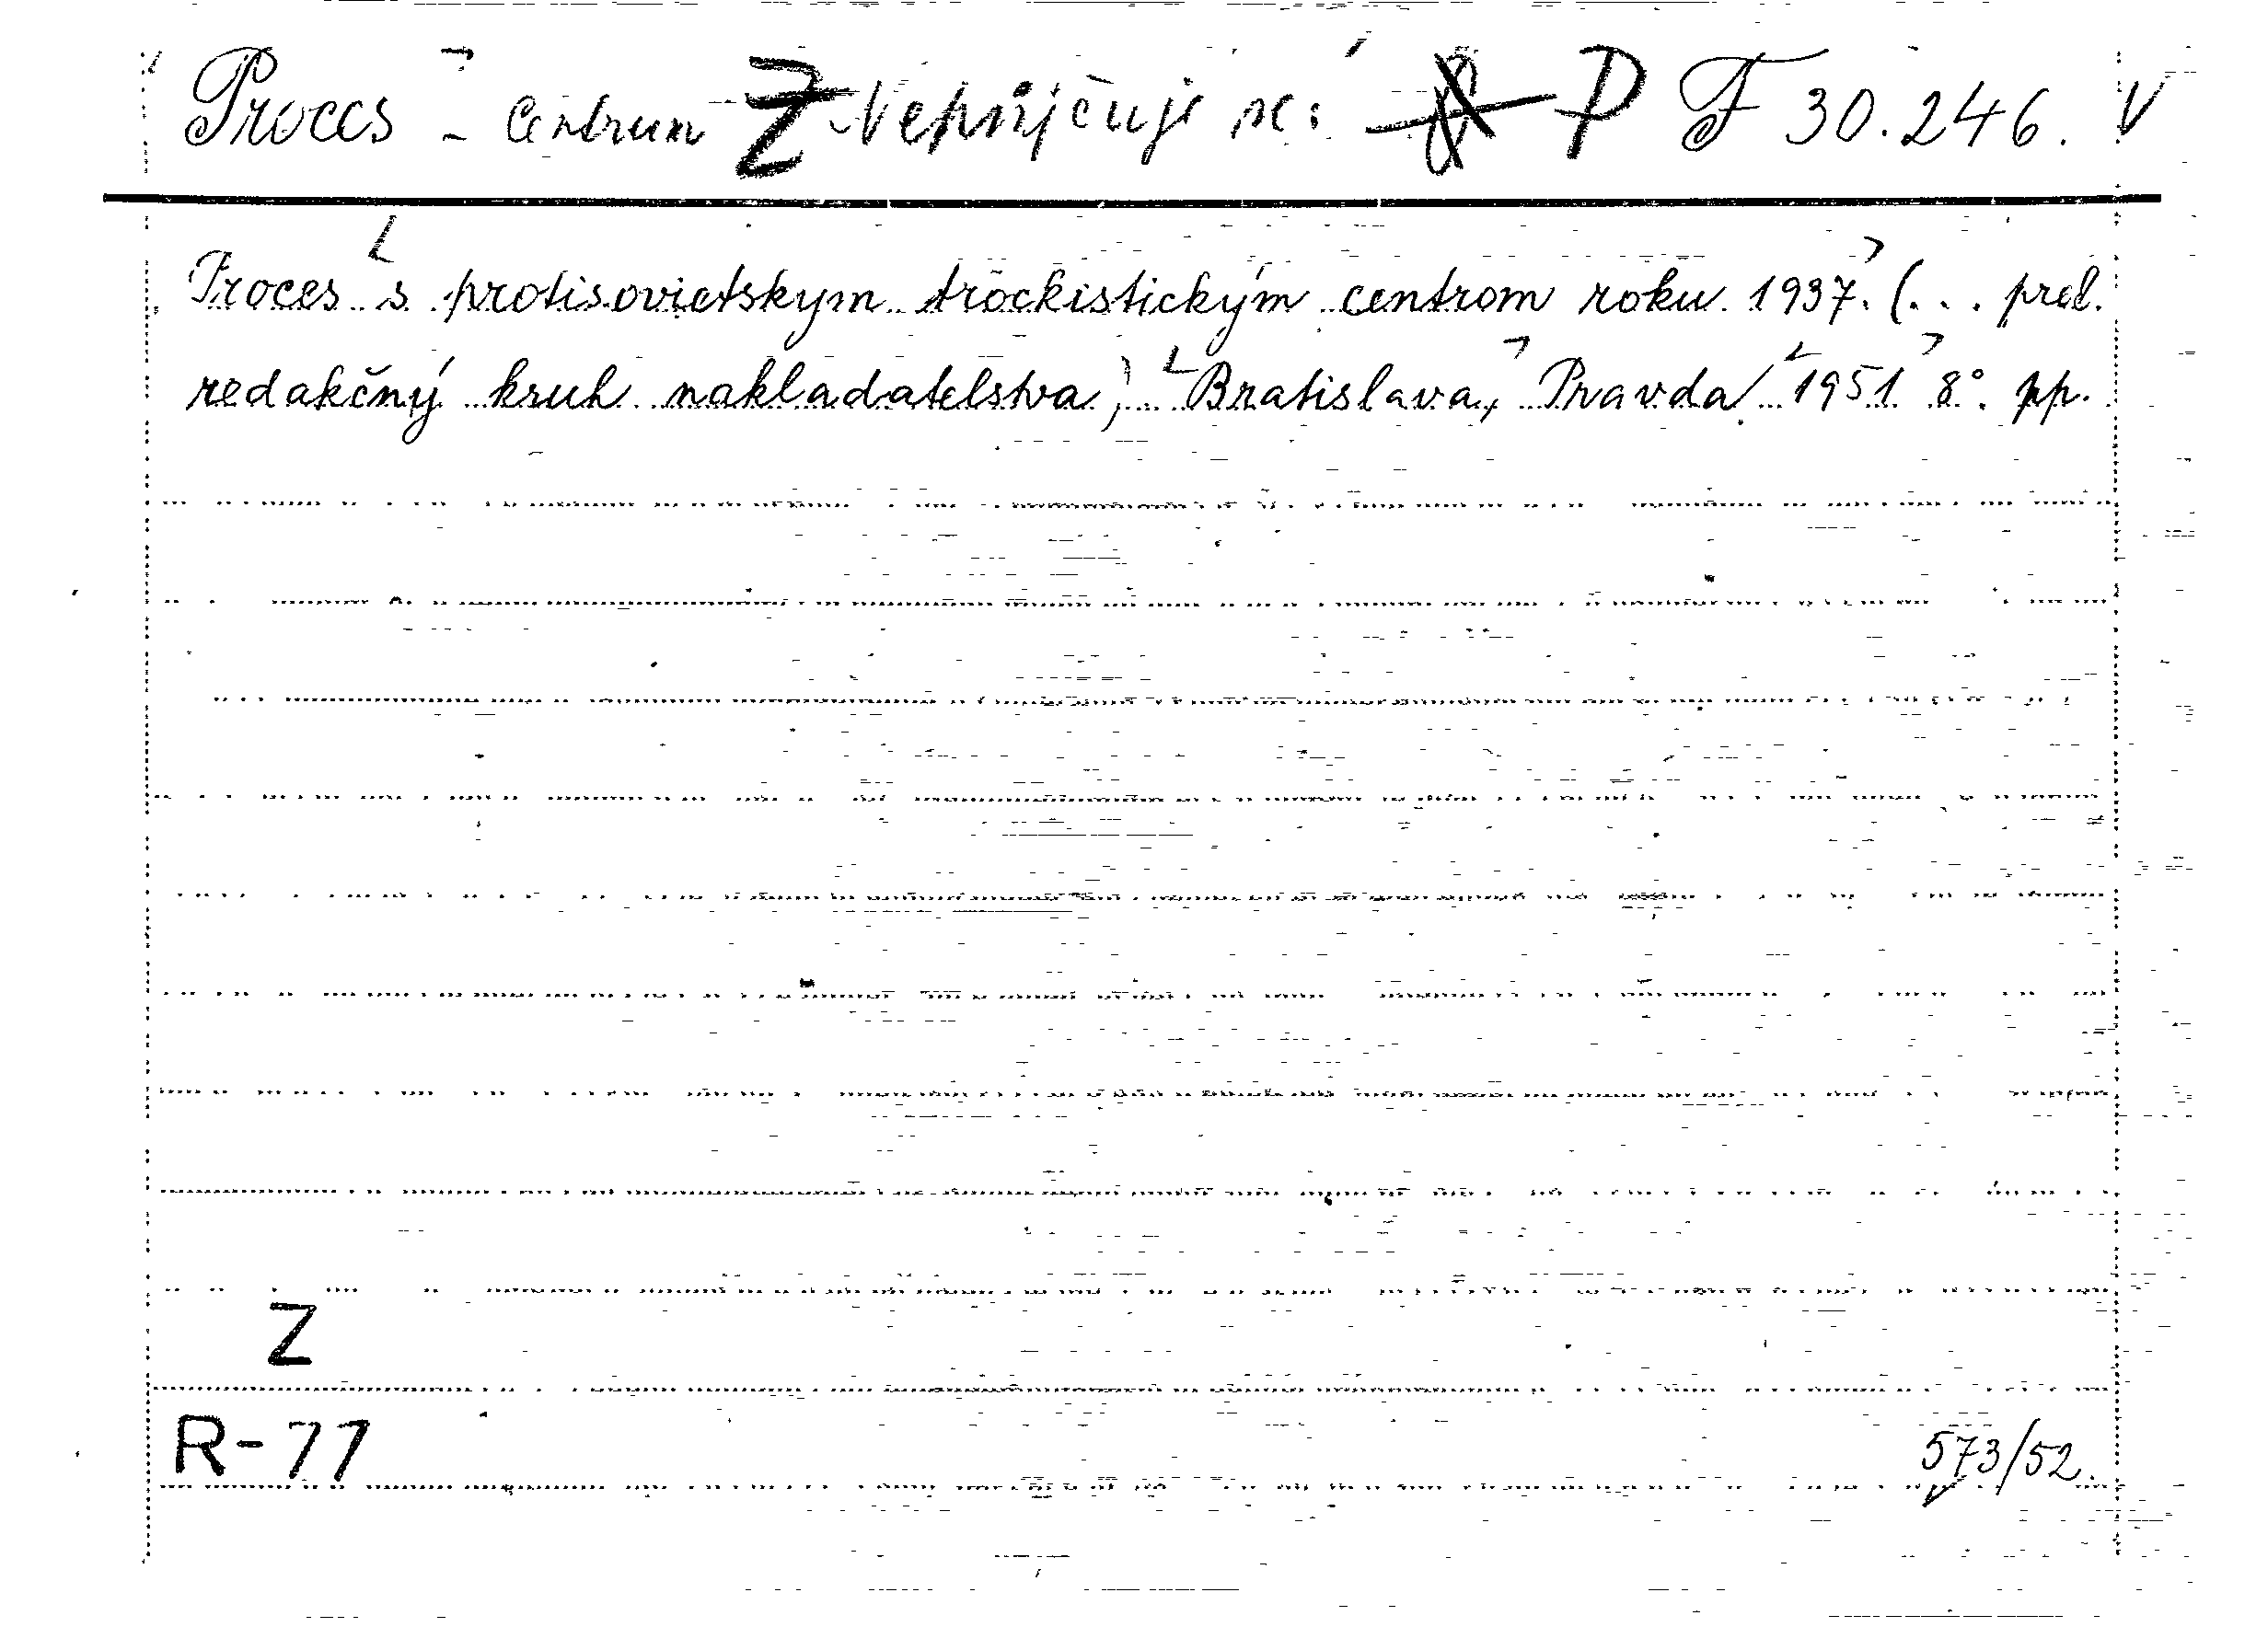 Proces - Centrum Z Nepůjčuje se: P F 30.246. V
Proces s protisovietskym trockistickým centrom roku 1937. (... prel.
redakčný kruh nakladatelstva), Bratislava, Pravda 1951 8°. pp.
Z
R-77
573/52.